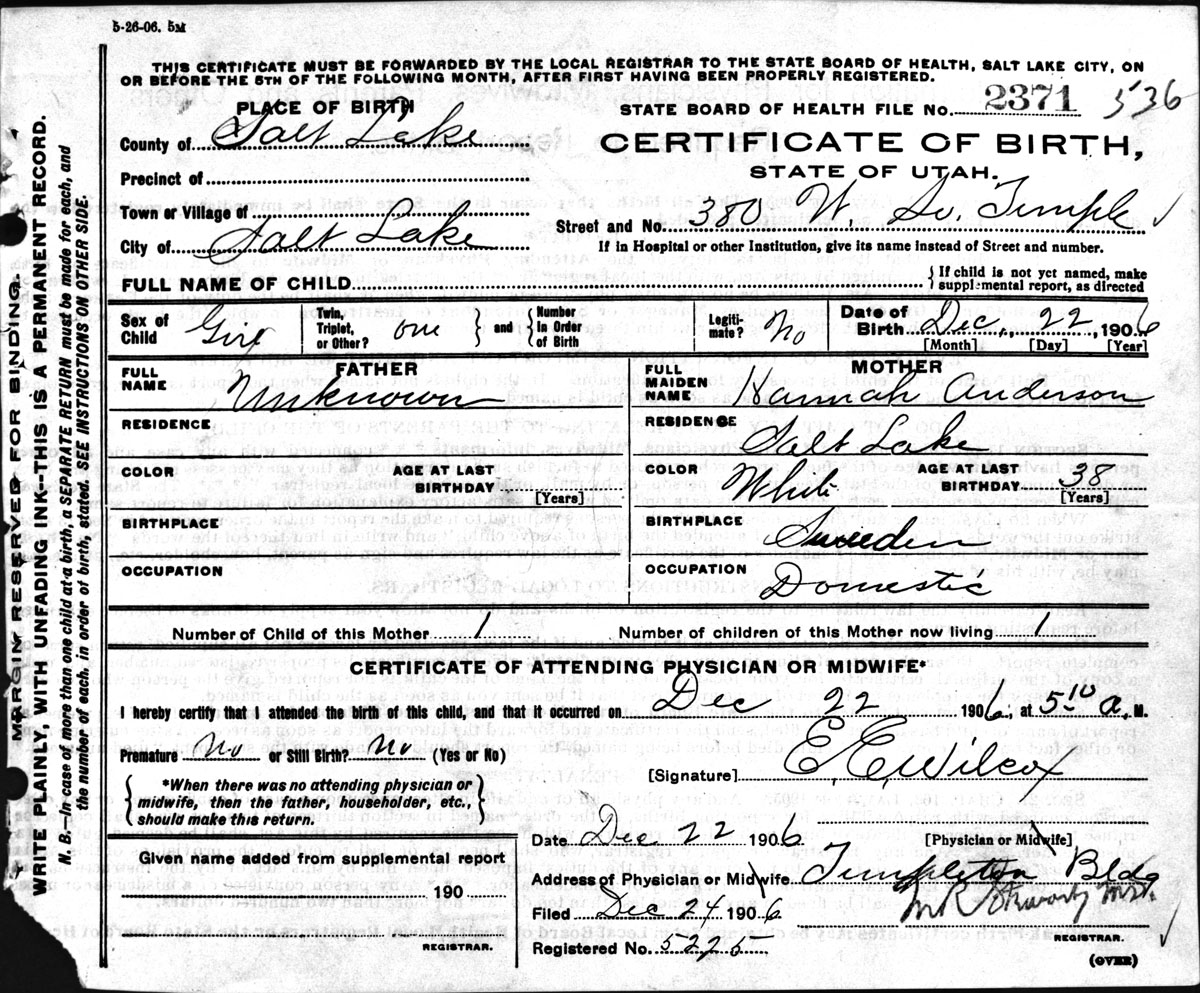 5-26-06. 5M
THIS CERTIFICATE MUST BE FORWARDED BY THE LOCAL REGISTRAR TO THE STATE BOARD OF HEALTH, SALT LAKE CITY, ON
OR BEFORE THE 5TH OF THE FOLLOWING MONTH, AFTER FIRST HAVING BEEN PROPERLY REGISTERED.
PLACE OF BIRTH
STATE BOARD OF HEALTH FILE No. 2371 536
County of Salt Lake
CERTIFICATE OF BIRTH,
STATE OF UTAH.
Precinct of
Town or Village of
Street and No. 380 W, So. Temple
City of Salt Lake
If in Hospital or other Institution, give its name instead of Street and number.
FULL NAME OF CHILD { If child is not yet named, make supplemental report, as directed
Sex of Child Girl
Twin, Triplet, or Other? one and { Number In Order of Birth
Legitimate? No
Date of Birth Dec, 22, 1906
[Month] [Day] [Year]
FATHER
FULL NAME Unknown
RESIDENCE
COLOR
AGE AT LAST BIRTHDAY [Years]
BIRTHPLACE
OCCUPATION
MOTHER
FULL MAIDEN NAME Hannah Anderson
RESIDENCE Salt Lake
COLOR White
AGE AT LAST BIRTHDAY 38 [Years]
BIRTHPLACE Sweeden
OCCUPATION Domestic
Number of Child of this Mother 1
Number of children of this Mother now living 1
CERTIFICATE OF ATTENDING PHYSICIAN OR MIDWIFE*
I hereby certify that I attended the birth of this child, and that it occurred on Dec 22 1906, at 5 10 a. M.
Premature No or Still Birth? No (Yes or No)
{ *When there was no attending physician or midwife, then the father, householder, etc., should make this return. }
[Signature] E. E. Wilcox
[Physician or Midwife]
Date Dec 22 1906
Address of Physician or Midwife Templeton Bldg
Given name added from supplemental report
190
REGISTRAR.
Filed Dec 24 1906
REGISTRAR.
Registered No. 5225
(OVER)
MARGIN RESERVED FOR BINDING.
WRITE PLAINLY, WITH UNFADING INK—THIS IS A PERMANENT RECORD.
N. B.—In case of more than one child at a birth, a SEPARATE RETURN must be made for each, and
the number of each, in order of birth, stated. SEE INSTRUCTIONS ON OTHER SIDE.